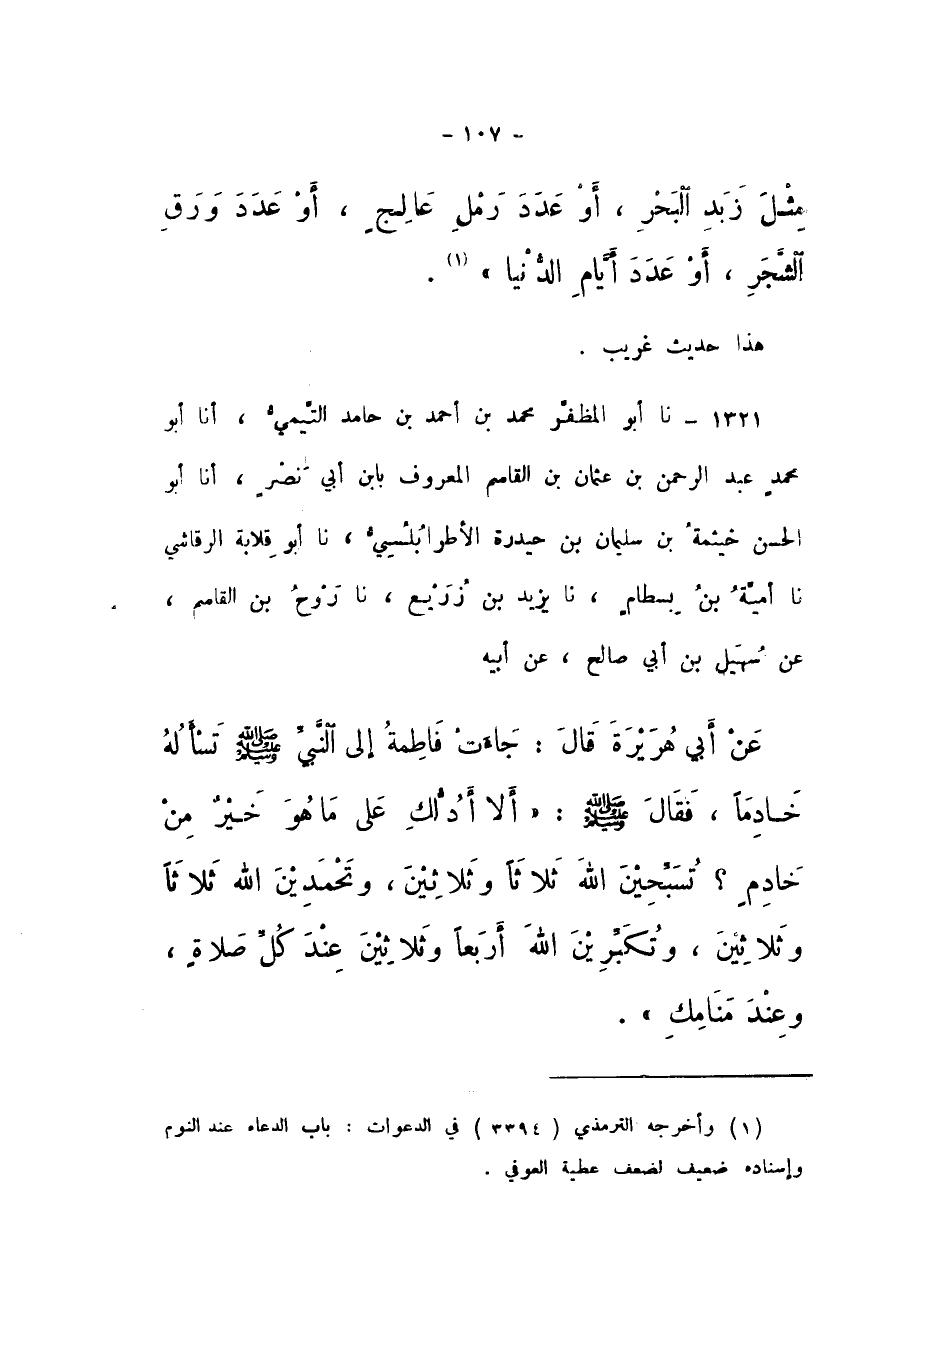 - ١٠٧ -
مِثْلَ زَبَدِ ٱلْبَحْرِ ، أَوْ عَدَدَ رَمْلِ عَالِجٍ ، أَوْ عَدَدَ وَرَقِ
ٱلشَّجَرِ ، أَوْ عَدَدَ أَيَّامِ الدُّنْيا » (١) .
هذا حديث غريب .
١٣٢١ – نا أبو المظفَّر محمد بن أحمد بن حامد التَّيميُّ ، أنا أبو
محمدٍ عبد الرحمن بن عثمان بن القاسم المعروف بابن أبي نَصْرٍ ، أنا أبو
الحسن خيثمةُ بن سليمان بن حيدرة الأطرابُلْسيُّ ، نا أبو قِلابة الرقاشي
نا أميَّةُ بنُ بِسطامٍ ، نا يزيد بن زُرَيْع ، نا رَوْحُ بن القاسم ،
عن سُهَيلِ بن أبي صالح ، عن أبيه
عَنْ أَبي هُرَيْرَةَ قَالَ : جَاءَتْ فَاطِمةُ إلى ٱلنَّبيِّ ﷺ تَسْأَلُهُ
خَـادِمَاً ، فَقَالَ ﷺ : « أَلا أَدُلُّكِ عَلى مَا هُوَ خَـيْرٌ مِنْ
خَادِمٍ ؟ تُسَبِّحِيْنَ اللهَ ثَلاثَاً وثَلاثِيْنَ ، وتَحْمَدِيْنَ الله ثَلاثَاً
وثَلاثِيْنَ ، وتُكَبِّرِيْنَ اللهَ أَرَبعاً وثَلاثِيْنَ عِنْدَ كُلِّ صَلاةٍ ،
وعِنْدَ مَنَامِكِ » .
(١) وأخرجه الترمذي ( ٣٣٩٤ ) في الدعوات : باب الدعاء عند النوم
وإسناده ضعيف لضعف عطية العوفي .